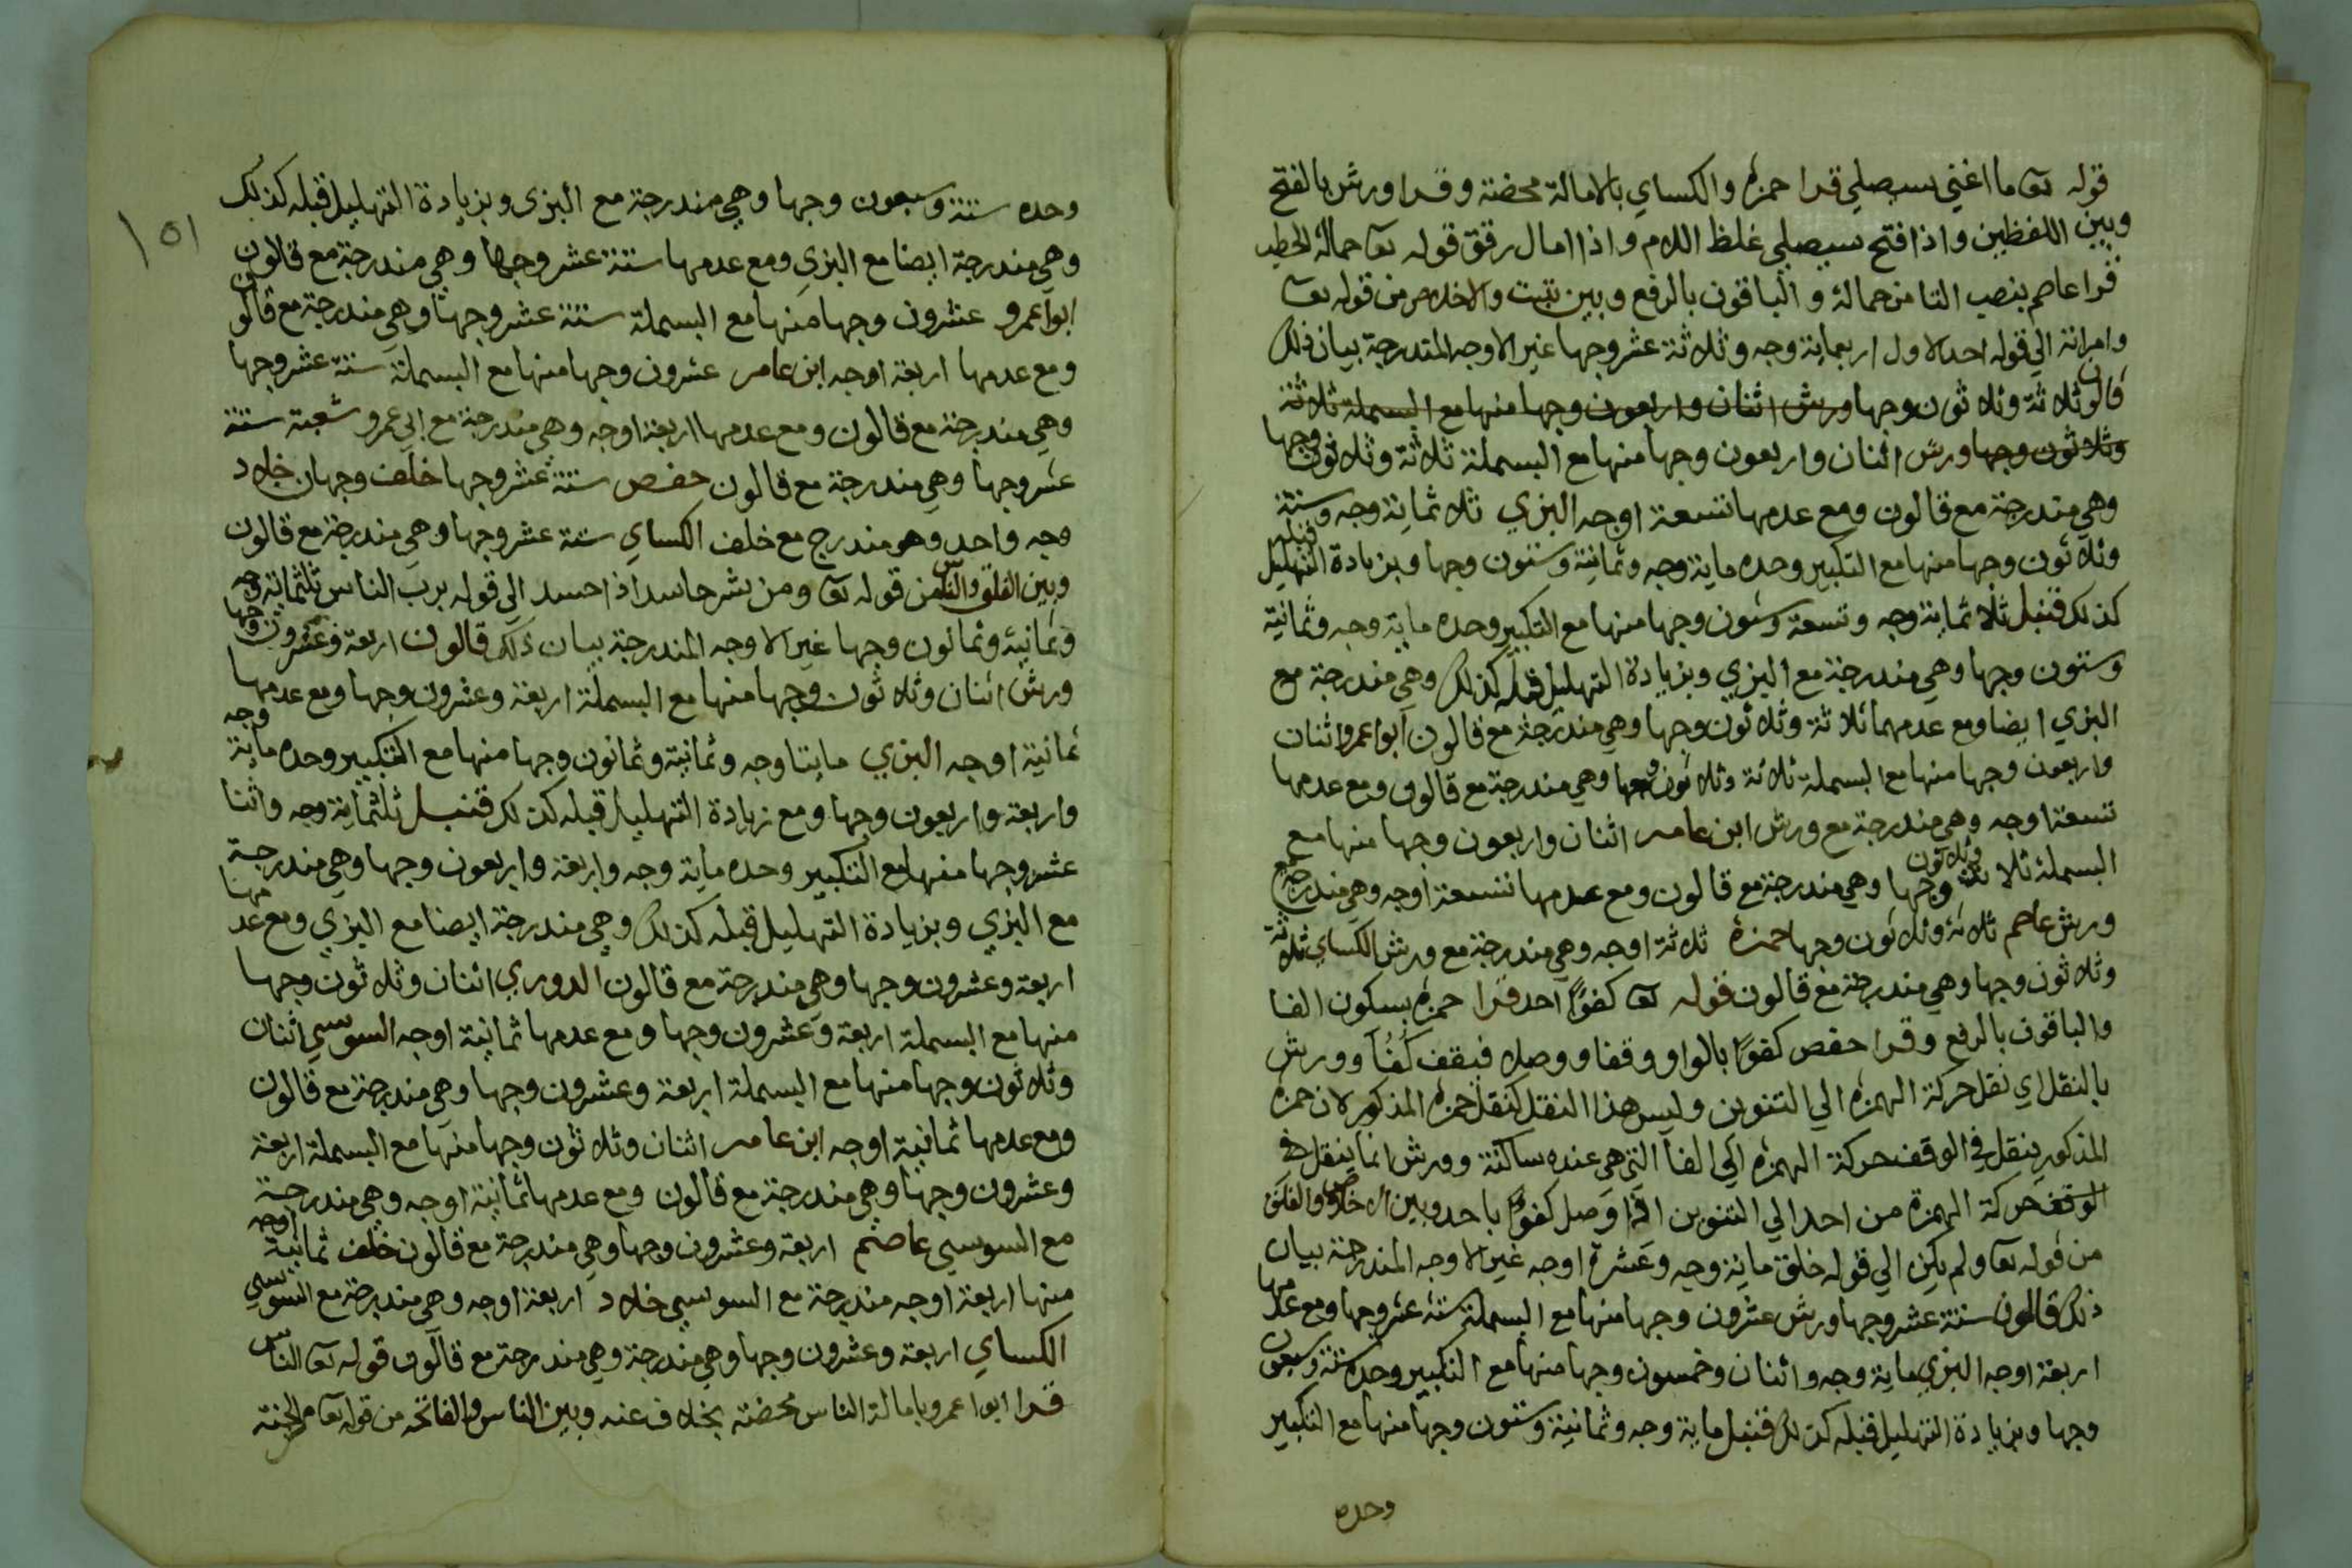 قوله تعا ما اغني سيصلي قرا حمزه والكساي بالامالة محضة وقرا ورش بالفتح
وبين اللفظين واذا فتح سيصلي غلظ اللام واذا امال رقق قوله تعا حمالة الحطب
قرا عاصم بنصب التا من حمالة والباقون بالرفع وبين تبت والاخلاص من قوله تعا
وامراته الي قوله احد الاول اربعماية وجه وثلاثة عشر وجها غير الاوجه المندرجة بيان ذلك
قالون ثلاثة وثلاثون وجها ورش اثنان واربعون وجها منها مع البسملة ثلاثة
وثلاثون وجها ورش اثنان واربعون وجها منها مع البسملة ثلاثة وثلاثون وجها
وهي مندرجة مع قالون ومع عدمها تسعة اوجه البزي ثلاثماية وجه وستة
وثلاثون وجها منها مع التكبير وحده ماية وجه وثمانية وستون وجها وبزيادة التهليل قبله
كذلك قنبل ثلاثماية وجه وتسعة وستون وجها منها مع التكبير وحده ماية وجه وثمانية
وستون وجها وهي مندرجة مع البزي وبزيادة التهليل قبله كذلك وهي مندرجة مع
البزي ايضا ومع عدمهما ثلاثة وثلاثون وجها وهي مندرجة مع قالون ابوا عمرو اثنان
واربعون وجها منها مع البسملة ثلاثة وثلاثون وجها وهي مندرجة مع قالون ومع عدمها
تسعة اوجه وهي مندرجة مع ورش ابن عامر اثنان واربعون وجها منها مع
البسملة ثلاثة وثلاثون وجها وهي مندرجة مع قالون ومع عدمها تسعة اوجه وهي مندرجة مع
ورش عاصم ثلاثة وثلاثون وجها حمزة ثلاثة اوجه وهي مندرجة مع ورش الكساي ثلاثة
وثلاثون وجها وهي مندرجة مع قالون قوله تعا كفوًا احد قرا حمزه بسكون الفا
والباقون بالرفع وقرا حفص كفوًا بالواو وقفا ووصلا فيقف كُفُاَ وورش
بالنقل اي نقل حركة الهمزه الي التنوين وليس هذا النقل كنقل حمزه المذكور لان حمزه
المذكور ينقل في الوقف حركة الهمزه الي الفا التي هي عنده ساكنة وورش انما ينقل في
الوقف حركة الهمزة من احد الي التنوين اذا وصل كفوًا باحد وبين الاخلاص والفلق
من قوله تعا ولم يكن الي قوله خلق ماية وجه وعشرة اوجه غير الاوجه المندرجة بيان
ذلك قالون ستة عشر وجها ورش عشرون وجها منها مع البسملة ستة عشر وجها ومع عدمها
اربعة اوجه البزي ماية وجه واثنان وخمسون وجها منها مع التكبير وحده ستة وسبعون
وجها وبزيادة التهليل قبله كذلك قنبل ماية وجه وثمانية وستون وجها منها مع التكبير
وحده
١٥١
وحده ستة وسبعون وجها وهي مندرجة مع البزي وبزيادة التهليل قبله كذلك
وهي مندرجة ايضا مع البزي ومع عدمها ستة عشر وجها وهي مندرجة مع قالون
ابوا عمرو عشرون وجها منها مع البسملة ستة عشر وجها وهي مندرجة مع قالون
ومع عدمها اربعة اوجه ابن عامر عشرون وجها منها مع البسملة ستة عشر وجها
وهي مندرجة مع قالون ومع عدمها اربعة اوجه وهي مندرجة مع ابي عمرو شعبة ستة
عشر وجها وهي مندرجة مع قالون حفص ستة عشر وجها خلف وجهان خلاد
وجه واحد وهو مندرج مع خلف الكساي ستة عشر وجها وهي مندرجة مع قالون
وبين الفلق والناس من قوله تعا ومن شر حاسد اذا حسد الي قوله برب الناس ثلثماية وجه
وثمانية وثمانون وجها غير الاوجه المندرجة بيان ذلك قالون اربعة وعشرون وجها
ورش اثنان وثلاثون وجها منها مع البسملة اربعة وعشرون وجها ومع عدمها
ثمانية اوجه البزي مايتا وجه وثمانية وثمانون وجها منها مع التكبير وحده ماية وجه
واربعة واربعون وجها ومع زيادة التهليل قبله كذلك قنبل ثلثماية وجه واثنا
عشر وجها منها مع التكبير وحده ماية وجه واربعة واربعون وجها وهي مندرجة
مع البزي وبزيادة التهليل قبله كذلك وهي مندرجة ايضا مع البزي ومع عدمها
اربعة وعشرون وجها وهي مندرجة مع قالون الدوري اثنان وثلاثون وجها
منها مع البسملة اربعة وعشرون وجها ومع عدمها ثمانية اوجه السوسي اثنان
وثلاثون وجها منها مع البسملة اربعة وعشرون وجها وهي مندرجة مع قالون
ومع عدمها ثمانية اوجه ابن عامر اثنان وثلاثون وجها منها مع البسملة اربعة
وعشرون وجها وهي مندرجة مع قالون ومع عدمها ثمانية اوجه وهي مندرجة
مع السوسي عاصم اربعة وعشرون وجها وهي مندرجة مع قالون خلف ثمانية اوجه
منها اربعة اوجه مندرجة مع السوسي خلاد اربعة اوجه وهي مندرجة مع السوسي
الكساي اربعة وعشرون وجها وهي مندرجة وهي مندرجة مع قالون قوله تعا الناس
قرا ابوا عمرو بامالة الناس محضة بخلاف عنه وبين الناس والفاتحة من قوله تعا من الجنة